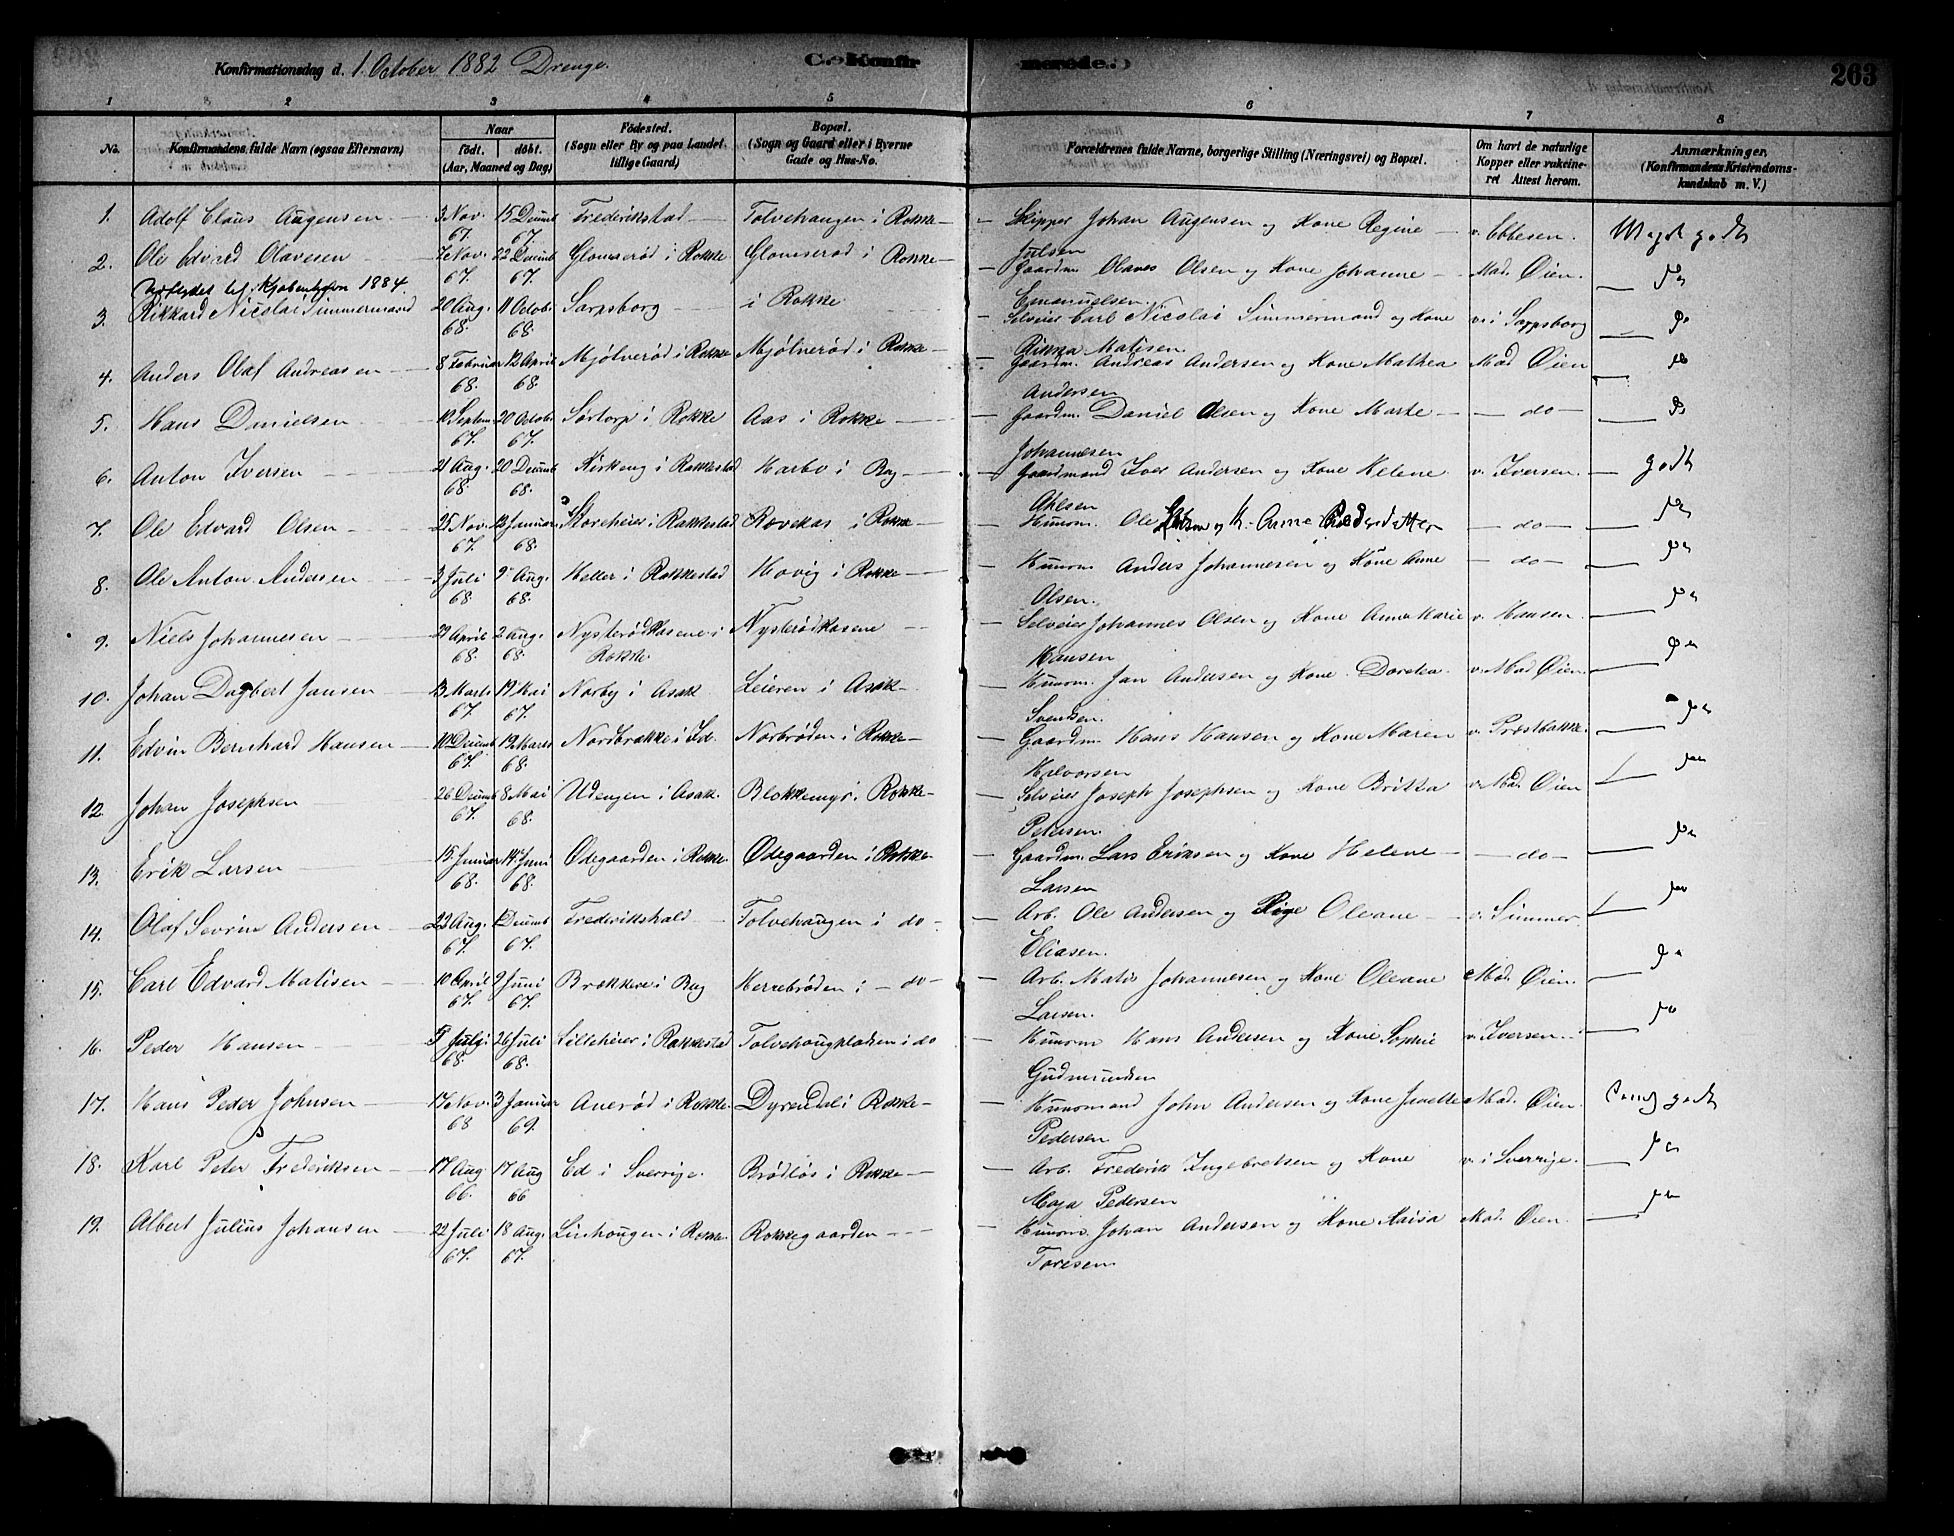 Konfirmationsdag d. 1 October 1882 Drenge.
Konfirmerede.
263
1 2 3 4 5 6 7 8
No. Konfirmandens fulde Navn (ogsaa Efternavn)
Naar født. døbt. (Aar, Maaned og Dag)
Fødested. (Sogn eller By og paa Landet tillige Gaard)
Bopæl. (Sogn og Gaard eller i Byerne Gade og Hus-No.
Forældrenes fulde Navne, borgerlige Stilling (Næringsvei) og Bopæl.
Om havt de naturlige Kopper eller vakcineret Attest herom.
Anmærkninger, (Konfirmandens Kristendomskundskab m. V.)
1. Adolf Claus Augensen 3 Nov. 67 15 Decemb 67. Frederikstad Tolvehaugen i Rokke Skipper Johan Augensen og Kone Regine Julsen v. Ebbesen. Meget godt
2. Ole Edvard Olavesen 7 Nov. 67. 22 Decemb 67. Glomserød i Rokke Glomserød i Rokke Gaardm. Olaves Olsen og Kone Johanne Emanuelsen. Mad. Øien. Do
Udflyttet til Kjøbenhavn 1884
3. Rikkard Nicolai Simmermand 20 Aug. 68. 11 Octob. 68. Sarpsborg i Rokke Selveier Carl Nicolai Simmermand og Kone Rikka Matisen. v. i Sarpsborg Do
4. Anders Olaf Andreasen 8 Februar 68. 12 April 68. Mjølnerød i Rokke Mjølnerød i Rokke Gaardm. Andreas Andersen og Kone Mathea Andersen Mad Øien do
5. Hans Danielsen 10 Septem. 67. 20 Octob. 67. Sortorp i Rokke Aas i Rokke Gaardm. Daniel Olsen og Kone Marte Johannesen do Do
6. Anton Iversen 21 Aug. 68. 20 Decemb 68. Kirkeng i Rakkestad Harbo i Rokke Gaardmand Iver Andersen og Kone Helene Ahlsen v. Iversen. godt
7. Ole Edvard Olsen 25 Nov. 67. 12 Januar 68. Skoreheier i Rakkestad Rævekas i Rokke Husm. Ole og K. Anne Pedersdatter do Do
8. Ole Anton Andersen 3 Juli 68. 9 Aug. 68. Heller i Rakkestad Hovig i Rokke Husm Anders Johannesen og Kone Anne Olsen. do Do
9. Niels Johannesen 29 April 68. 2 Aug. 68. Nysterødkasene i Rokke Nysterødkasene Selveier Johannes Olsen og Kone Anne Marie Hansen v. Hansen. Do
10. Johan Dagbert Jansen 13 Marts 67. 19 Mai 67. Norby i Asak. Leieren i Asak Husm. Jan Andersen og Kone Dorotea Svendsen. v. Mad Øien. Do
11. Edvin Bernhard Hansen 10 Decemb 67. 19 Marts 68. Nordbrække i Id. Norbrøden i Rokke Gaardm. Hans Hansen og Kone Maren Halvorsen v. Præstbakke. Do
12. Johan Josephsen 26 Decemb 67. 8 Mai 68. Udengen i Asak. Blokkemyr i Rokke Selveier Joseph Josephsen og Kone Britta Petersen. v. Mad. Øien Do
13. Erik Larsen 15 Januar 68. 14 Juni 68. Ødegaarden i Rokke. Ødegaarden i Rokke Gaardm. Lars Eriksen og Kone Helene Larsen do Do
14. Olaf Sevrin Andersen 23 Aug. 67. 1 Decemb 67. Frederikshald Tolvehaugen i do Arb. Ole Andersen og Pige Oleane Eliasen. v. Simmer. Do
15. Carl Edvard Matisen 10 April 67. 9 Juni 67. Brækkeri i Rokke Herrebrøden i do Arb. Matis Johannesen og Kone Oleane Larsen. Mad. Øien. Do
16. Peder Hansen 5 July. 68. 26 Juli 68. Lilleheier i Rakkestad Tolvehaugpladsen i do Husm Hans Andersen og Kone Sophie Gudmundsen v. Iversen. Do
17. Hans Peder Johnsen 17 Nov. 68 3 Januar 69. Anerød i Rokke. Dyrendal i Rokke Husmand John Andersen og Kone Jenette Pedersen Mad. Øien. godt
18. Karl Peter Frederiksen 17 Aug 66. 17 Aug 66 Ed i Sverrige. Brødløs i Rokke Arb. Frederik Ingebretsen og Kone Maja Pedersen v. i Sverrige. Do
19. Albert Julius Johansen 22 Juli 67. 18 Aug. 67. Linhougen i Rokke. Rokkegaarden Husm. Johan Andersen og Kone Kaisa Toresen. Mad. Øien. Do